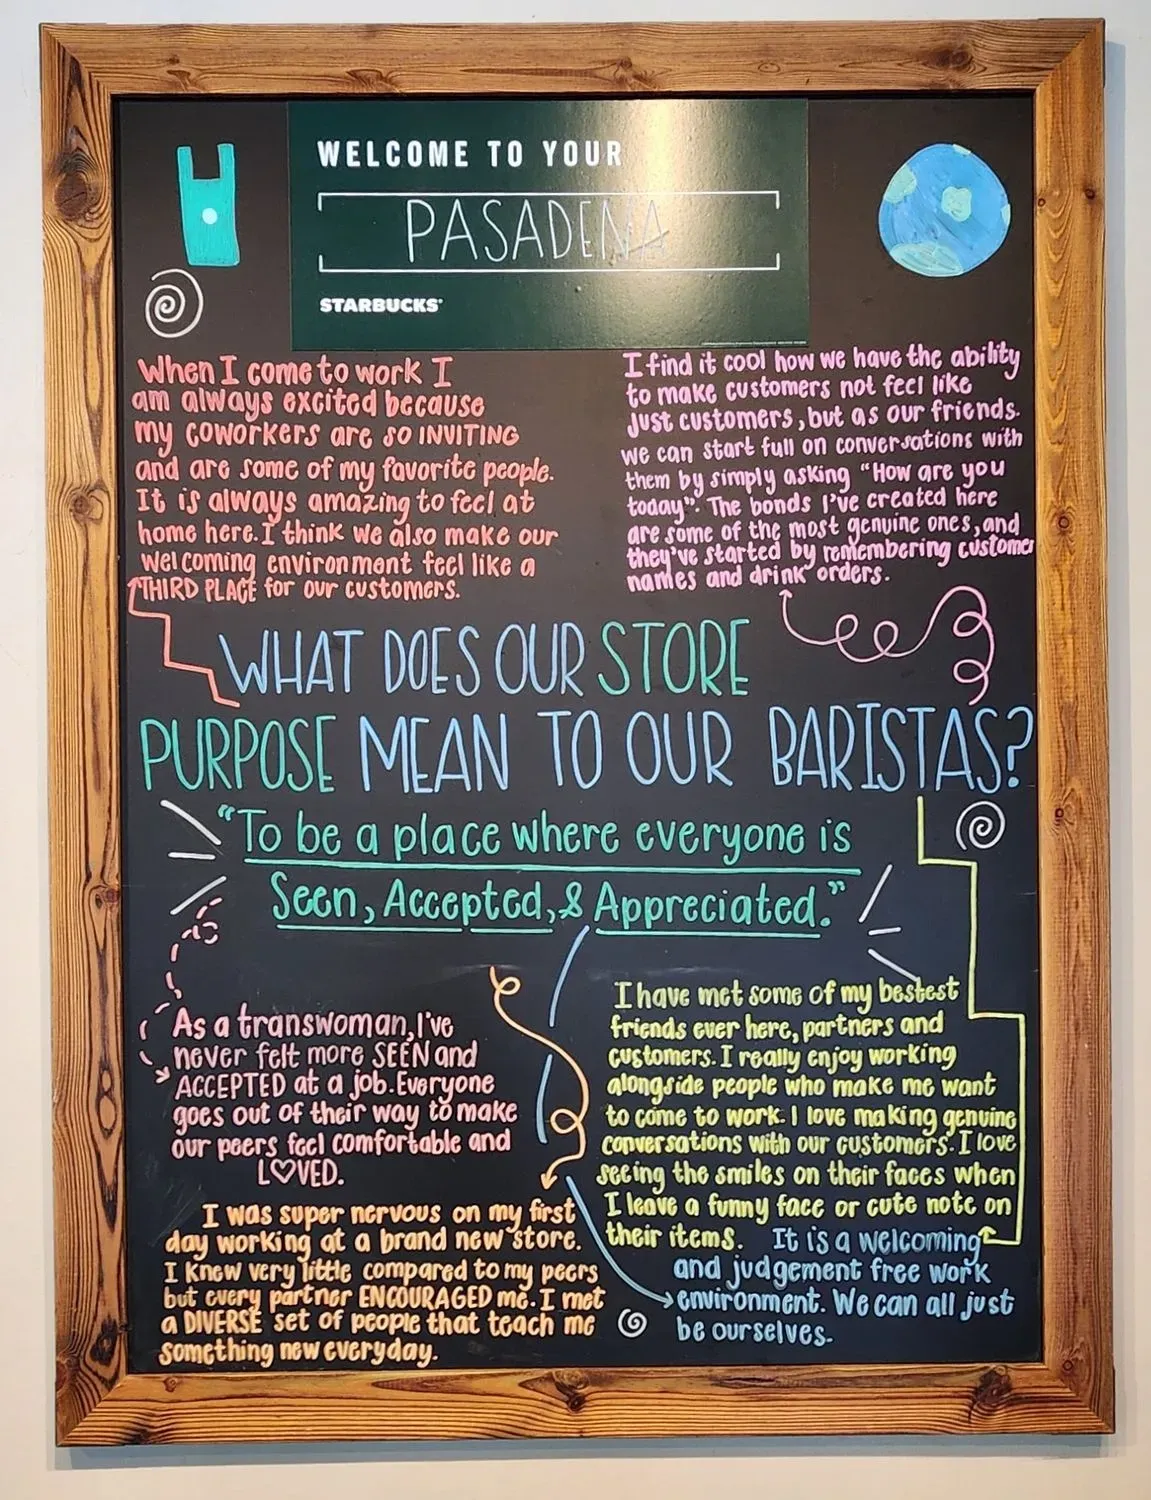 WELCOME TO YOUR
PASADENA
STARBUCKS®
When I come to work I
am always excited because
my coworkers are so INVITING
and are some of my favorite people.
It is always amazing to feel at
home here. I think we also make our
welcoming environment feel like a
THIRD PLACE for our customers.
I find it cool how we have the ability
to make customers not feel like
just customers, but as our friends.
we can start full on conversations with
them by simply asking "How are you
today". The bonds I've created here
are some of the most genuine ones, and
they've started by remembering customer
names and drink orders.
WHAT DOES OUR STORE
PURPOSE MEAN TO OUR BARISTAS?
"To be a place where everyone is
Seen, Accepted, & Appreciated."
As a transwoman, I've
never felt more SEEN and
ACCEPTED at a job. Everyone
goes out of their way to make
our peers feel comfortable and
L♡VED.
I was super nervous on my first
day working at a brand new store.
I knew very little compared to my peers
but every partner ENCOURAGED me. I met
a DIVERSE set of people that teach me
something new everyday.
I have met some of my bestest
friends ever here, partners and
customers. I really enjoy working
alongside people who make me want
to come to work. I love making genuine
conversations with our customers. I love
seeing the smiles on their faces when
I leave a funny face or cute note on
their items.
It is a welcoming
and judgement free work
environment. We can all just
be ourselves.